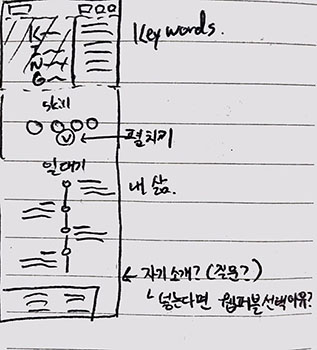 K
I
N
G
Key words.
skill
펼치기
일대기
내 삶.
← 자기소개? (질문?)
넣는다면 웹퍼블선택이유?